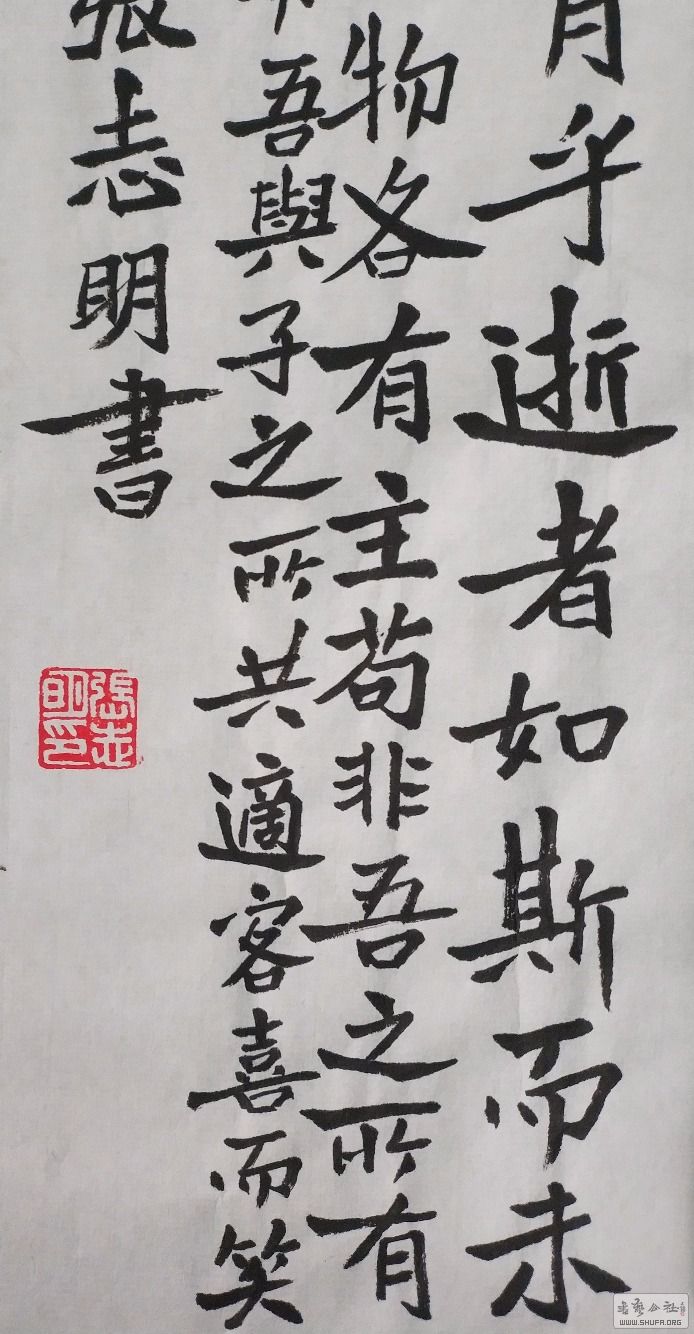 月乎逝者如斯而未
物各有主苟非吾之所有
吾與子之所共適客喜而笑
張志明書
張志明印
書藝公社
WWW.SHUFA.ORG